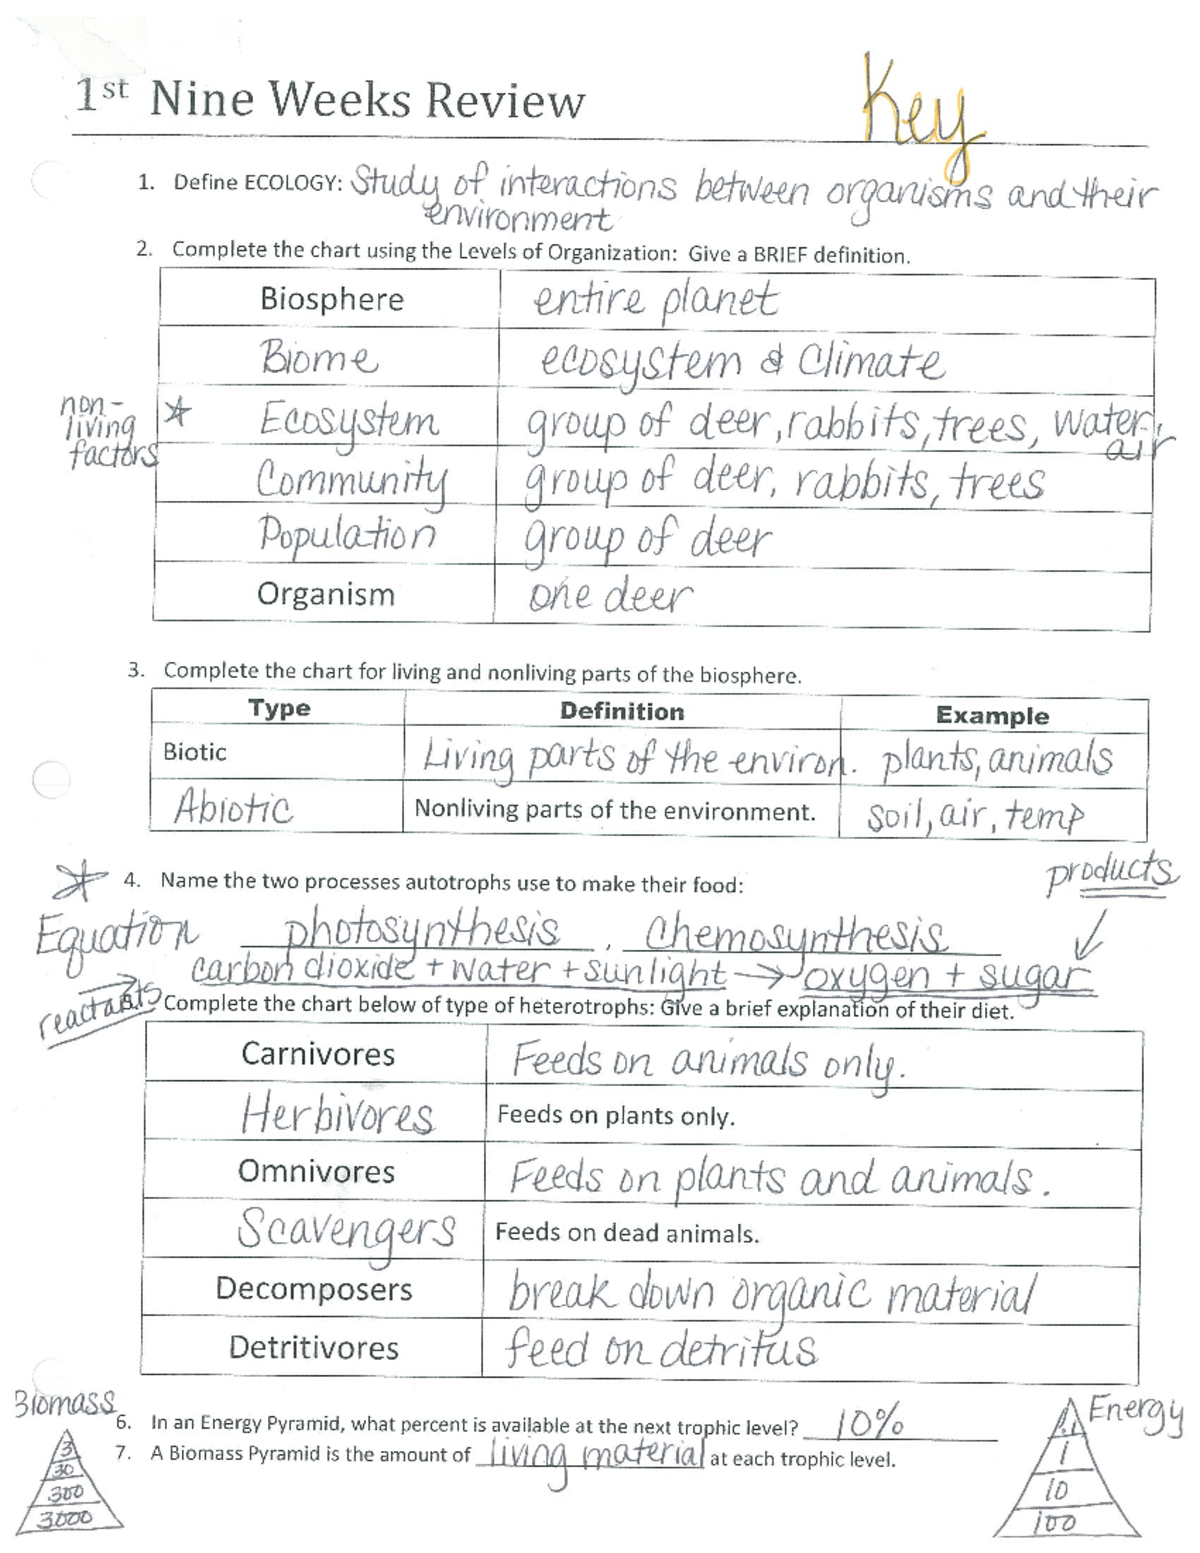 1st Nine Weeks Review
Key
1. Define ECOLOGY: Study of interactions between organisms and their
environment
2. Complete the chart using the Levels of Organization: Give a BRIEF definition.
Biosphere entire planet
Biome ecosystem & Climate
non-
living
factors
* Ecosystem group of deer, rabbits, trees, water,
air
Community group of deer, rabbits, trees
Population group of deer
Organism one deer
3. Complete the chart for living and nonliving parts of the biosphere.
Type Definition Example
Biotic Living parts of the environ. plants, animals
Abiotic Nonliving parts of the environment. soil, air, temp
* 4. Name the two processes autotrophs use to make their food:
products
Equation photosynthesis, chemosynthesis
carbon dioxide + water + sunlight → oxygen + sugar
reactants
5. Complete the chart below of type of heterotrophs: Give a brief explanation of their diet.
Carnivores Feeds on animals only.
Herbivores Feeds on plants only.
Omnivores Feeds on plants and animals.
Scavengers Feeds on dead animals.
Decomposers break down organic material
Detritivores feed on detritus
Biomass
3
30
300
3000
6. In an Energy Pyramid, what percent is available at the next trophic level? 10%
7. A Biomass Pyramid is the amount of living material at each trophic level.
Energy
.1
1
10
100